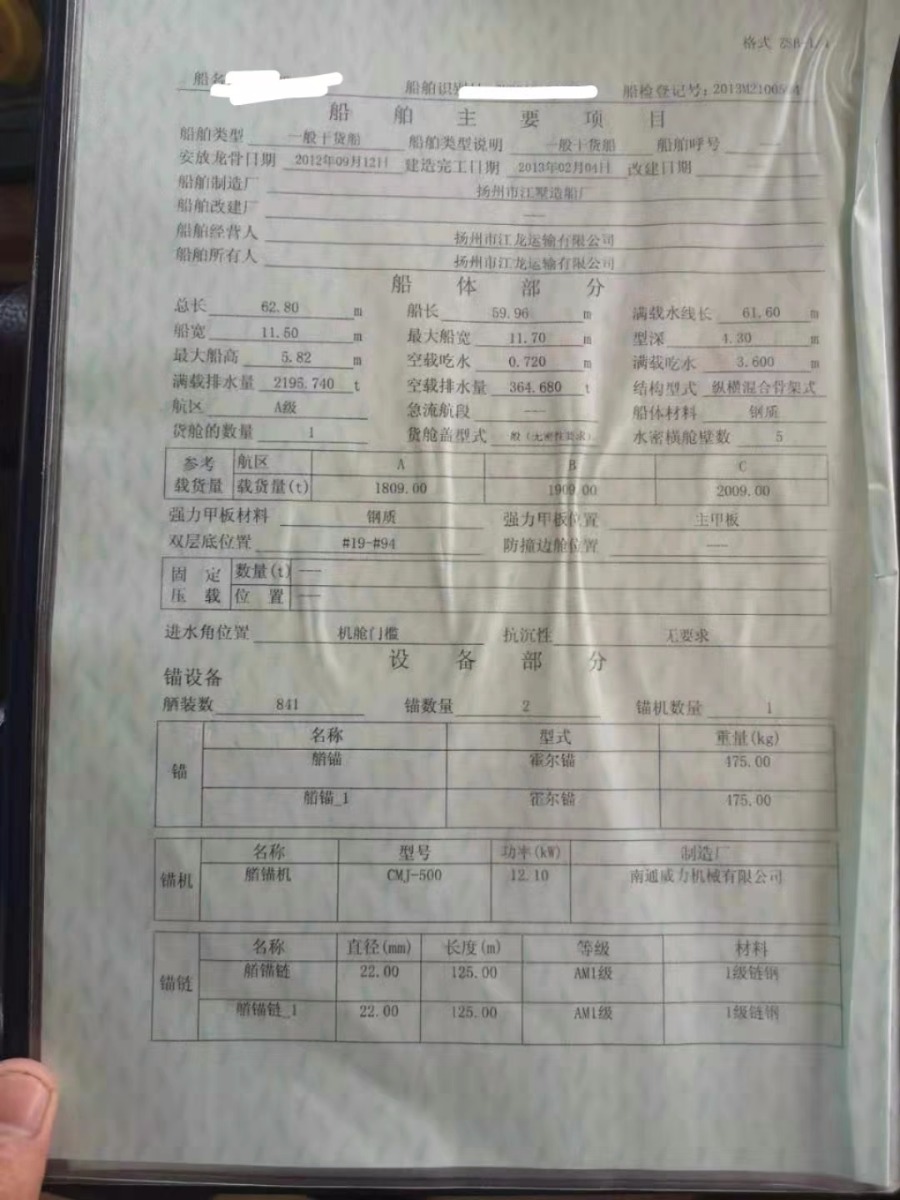 格式
船名 船舶识别 船检登记号:
船舶主要项目
船舶类型 一般干货船 船舶类型说明 一般干货船 船舶呼号 ---
安放龙骨日期 2012年09月12日 建造完工日期 2013年02月04日 改建日期 ---
船舶制造厂 扬州市江墅造船厂
船舶改建厂 ---
船舶经营人 扬州市江龙运输有限公司
船舶所有人 扬州市江龙运输有限公司
船体部分
总长 62.80 m 船长 59.96 m 满载水线长 61.60 m
船宽 11.50 m 最大船宽 11.70 m 型深 4.30 m
最大船高 5.82 m 空载吃水 0.720 m 满载吃水 3.600 m
满载排水量 2195.740 t 空载排水量 364.680 t 结构型式 纵横混合骨架式
航区 A级 急流航段 --- 船体材料 钢质
货舱的数量 1 货舱盖型式 一般(无密性要求) 水密横舱壁数 5
参考 航区 A B C
载货量 载货量(t) 1809.00 1909.00 2009.00
强力甲板材料 钢质 强力甲板位置 主甲板
双层底位置 #19-#94 防撞边舱位置 ---
固定 数量(t) ---
压载 位置 ---
进水角位置 机舱门槛 抗沉性 无要求
设备部分
锚设备
舾装数 841 锚数量 2 锚机数量 1
名称 型式 重量(kg)
锚 艏锚 霍尔锚 475.00
艏锚_1 霍尔锚 475.00
名称 型号 功率(kW) 制造厂
锚机 艏锚机 CMJ-500 12.10 南通威力机械有限公司
名称 直径(mm) 长度(m) 等级 材料
锚链 艏锚链 22.00 125.00 AM1级 1级链钢
艏锚链_1 22.00 125.00 AM1级 1级链钢